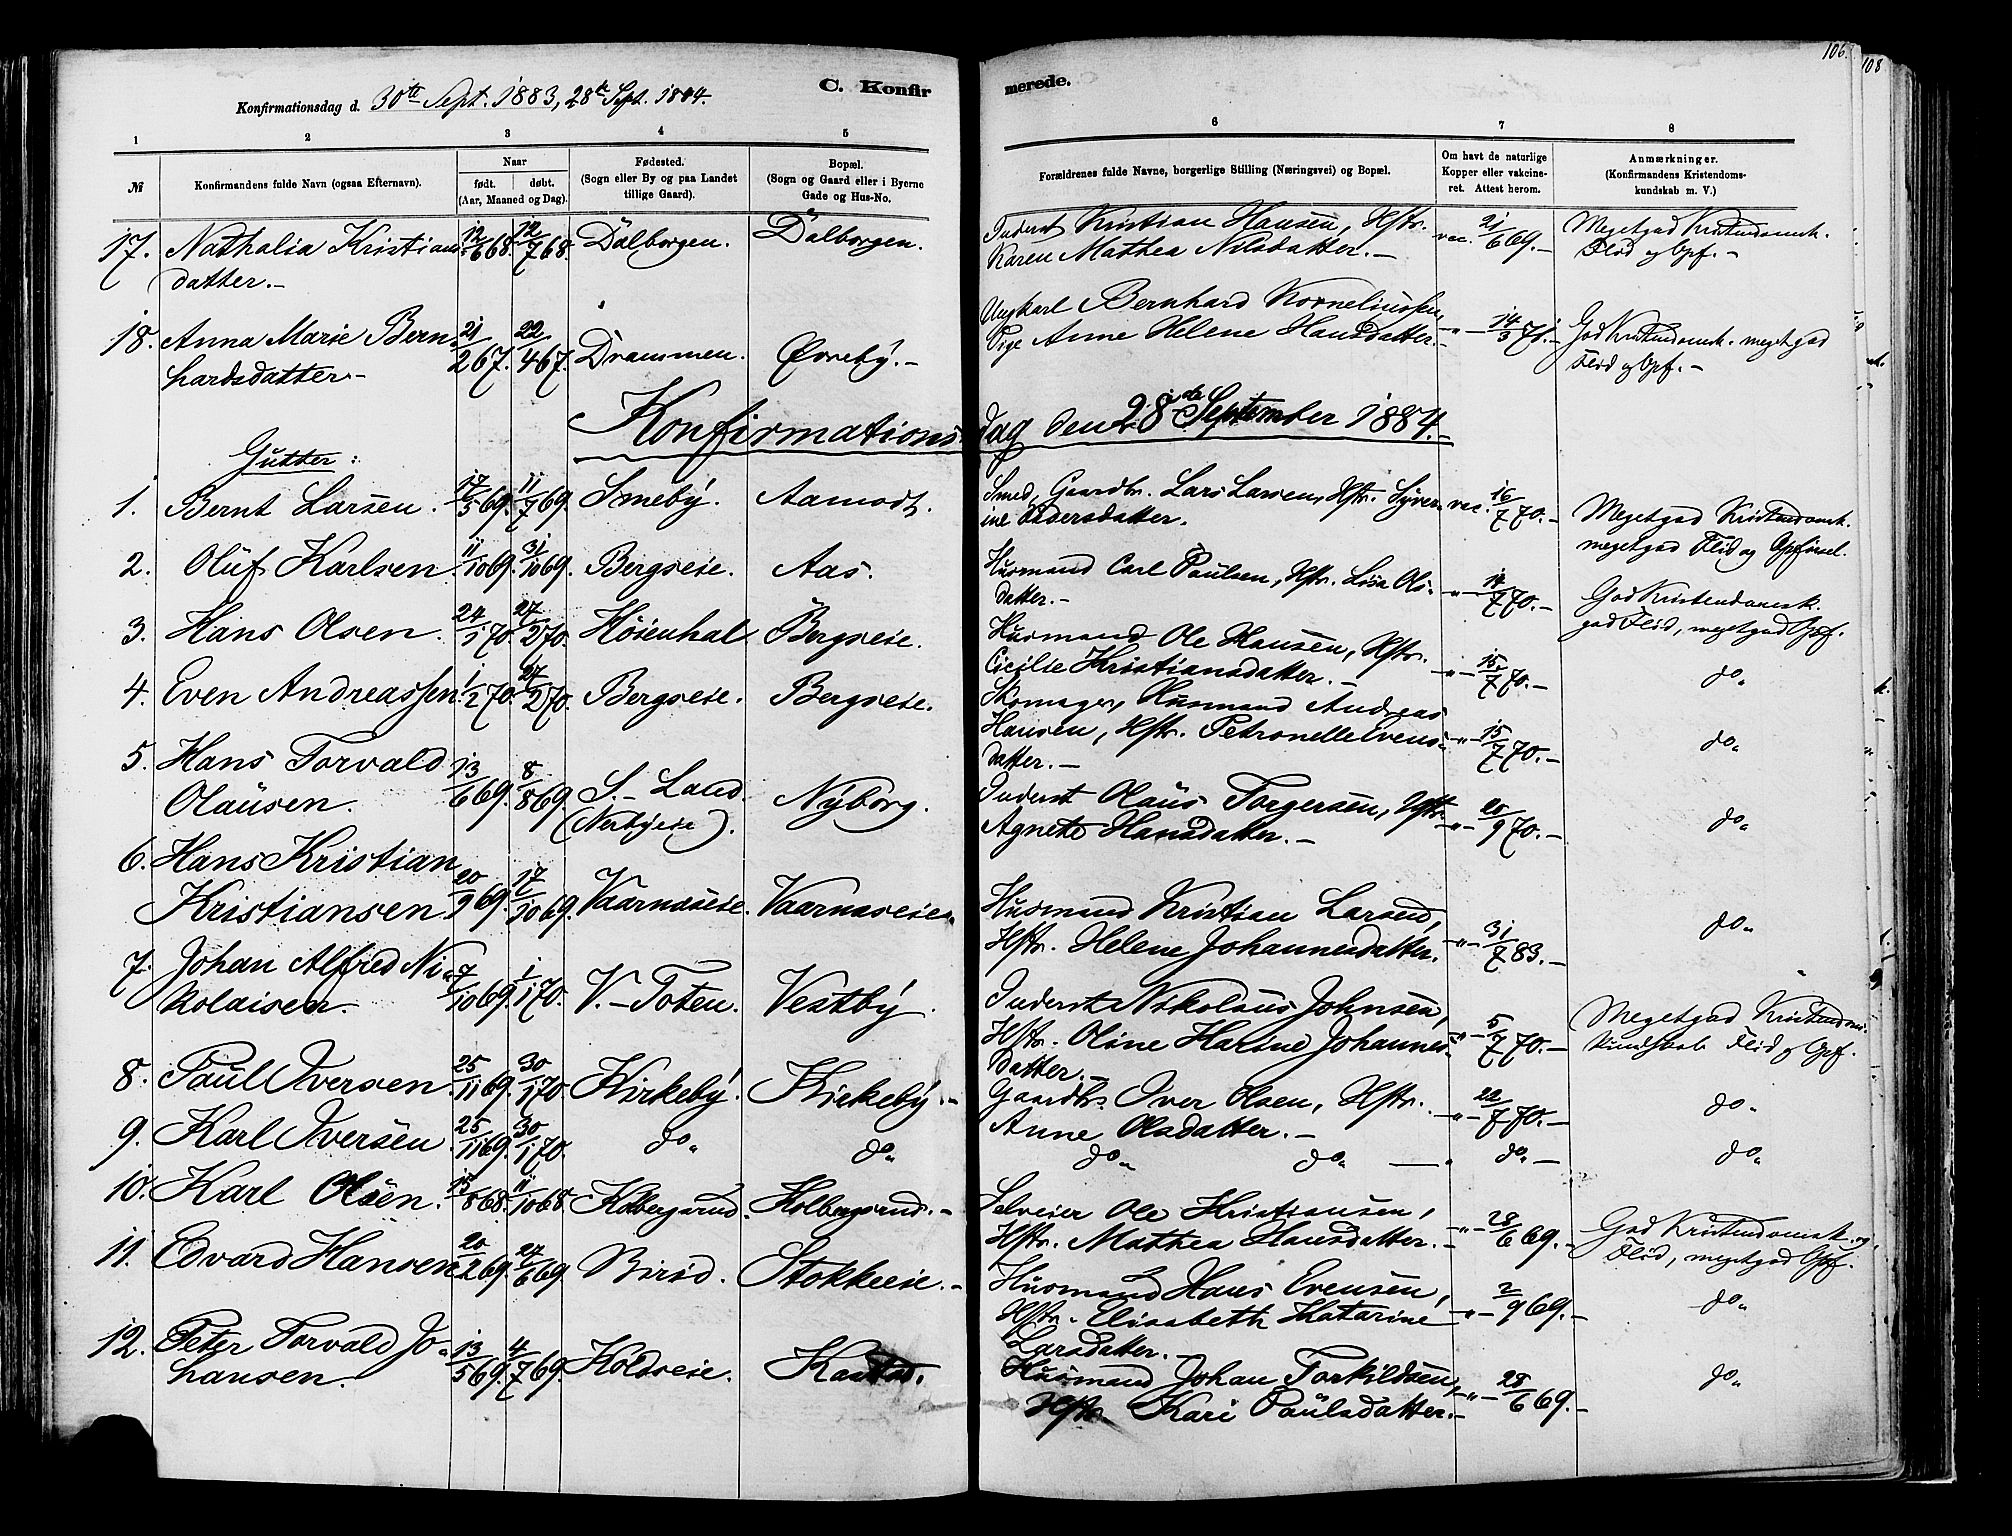 106.
108
Konfirmationsdag d. 30te Sept. 1883, 28de Sept. 1884.
C. Konfirmerede.
1 2 3 4 5 6 7 8
№
Konfirmandens fulde Navn (ogsaa Efternavn).
Naar
født. døbt.
(Aar, Maaned og Dag).
Fødested.
(Sogn eller By og paa Landet
tillige Gaard).
Bopæl.
(Sogn og Gaard eller i Byerne
Gade og Hus-No.
Forældrenes fulde Navne, borgerlige Stilling (Næringsvei) og Bopæl.
Om havt de naturlige
Kopper eller vakcine-
ret. Attest herom.
Anmærkninger.
(Konfirmandens Kristendoms-
kundskab m. V.)
17. Nathalia Kristians- 12/6 68. 12/7 68. Dalborgen. Dalborgen. Inderst Kristian Hansen, Hstr. vac. 21/6 69.– Megetgod Kristendomsk.
datter.– Karen Mathea Nilsdatter.– Flid og Opf.–
18. Anna Marie Bern- 21/2 67. 22/4 67. Drammen. Øvreby.– Ungkarl Bernhard Korneliussen, –"– 14/3 71.– God Kristendomsk. megetgod
hardsdatter– Pige Anne Helene Hansdatter.– Flid og Opf.–
Konfirmationsdag den 28de September 1884.–
Gutter:
1. Bernt Larsen. 17/5 69. 11/7 69. Smeby. Aamodt. Smed, Gaardbr. Lars Larsen, Hstr. Syver- vac. 16/7 70.– Megetgod Kristendomsk.
ine Andersdatter. megetgod Flid og Opførsel.
2. Oluf Karlsen. 11/10 69. 31/10 69. Bergseie. Aas. Husmand Carl Paulsen, Hstr. Lisa Ols- –"– 14/7 70.– God Kristendomsk.
datter.– god Flid, megetgod Opf.
3. Hans Olsen. 24/1 70. 27/2 70. Høienhal. Bergseie. Husmand Ole Hansen, Hstr. –"– 15/7 70.– do"
Cicilie Kristiansdatter.–
4. Even Andreassen. 1/2 70. 27/2 70. Bergseie. Bergseie. Skomager, Husmand Andreas
Hansen, Hstr. Petronelle Evens- –"– 15/7 70.– do"
datter.–
5. Hans Torvald 13/6 69. 8/8 69. S– Land. Nyborg. Inderst Olaus Torgersen, Hstr. –"– 20/9 70.– do"
Olausen. (Nerbyeie). Agnete Hansdatter.–
6. Hans Kristian
Kristiansen. 20/9 69. 17/10 69. Vaarnæseie. Vaarnæseie. Husmand Kristian Larsen, –"– 31/7 83.– do"
Hstr. Helene Johannesdatter.
7. Johan Alfred Ni- 7/10 69. 1/1 70. V.– Toten. Vestby. Inderst Nikolaus Johnsen, –"– 5/7 70.– Megetgod Kristendoms-
kolaisen. Hstr. Oline Harine Johannes- kundskab Flid og Opf.
datter.–
8. Paul Iversen. 25/11 69. 30/1 70. Kirkeby. Kirkeby.– Gaardbr. Iver Olsen, Hstr. –"– 22/7 70.– do"
Anne Olsdatter.–
9. Karl Iversen 25/11 69. 30/1 70. do" do" do" do" — " do"– do"
10. Karl Olsen. 15/8 68. 11/10 68. Kolbergsrud. Kolbergsrud.– Selveier Ole Kristiansen, –"– 28/6 69.– God Kristendomsk. og
Hstr. Mathea Hansdatter.– Flid, megetgod Opf.
11. Edvard Hansen 20/2 69. 27/6 69. Birid. Stokkeeie.– Husmand Hans Evensen, –"– 2/9 69.– do"
Hstr. Elisabeth Katarine
Larsdatter.–
12. Peter Torvald Jo- 13/5 69. 4/7 69. Koldseie. Husmand Johan Torkildsen, –"– 28/6 69.– do"
hansen. Hstr. Kari Paulsdatter.–